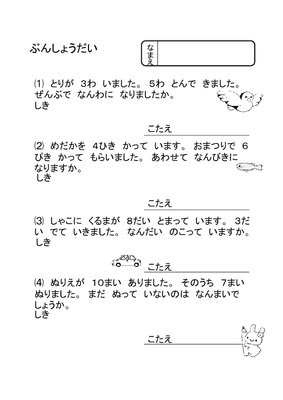 ぶんしょうだい
なまえ
⑴ とりが 3わ いました。 5わ とんで きました。
ぜんぶで なんわに なりましたか。
しき
こたえ
⑵ めだかを 4ひき かって います。 おまつりで 6
ぴき かって もらいました。 あわせて なんびきに
なりますか。
しき
こたえ
⑶ しゃこに くるまが 8だい とまって います。 3だ
い でて いきました。 なんだい のこって いますか。
しき
こたえ
⑷ ぬりえが 10まい ありました。 そのうち 7まい
ぬりました。 まだ ぬって いないのは なんまいで
しょうか。
しき
こたえ